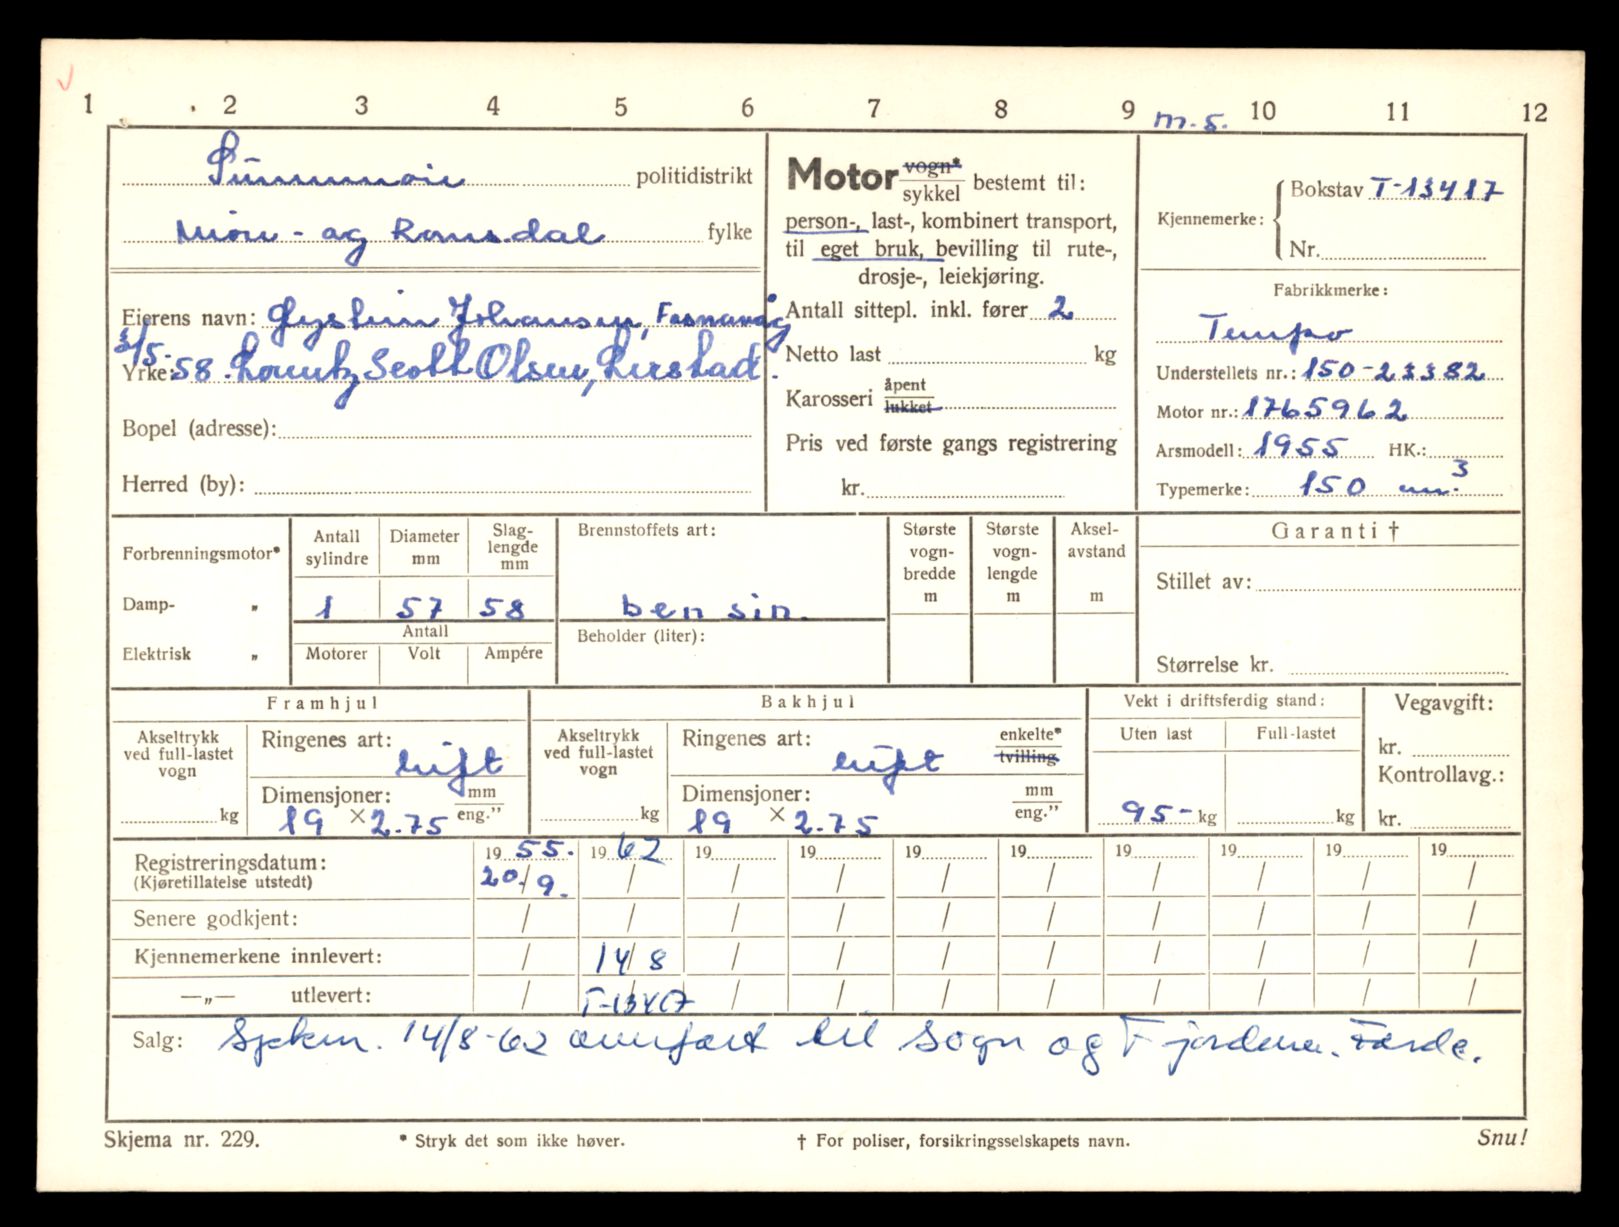 1 2 3 4 5 6 7 8 9 10 11 12
m.s.
Sunnmøre politidistrikt
Møre- og Romsdal fylke
Eierens navn: Øystein Johansen, Fosnavåg
3/5-58. Yrke: Scott Olsen,
Bopel (adresse):
Herred (by):
Motor vogn* sykkel bestemt til:
person-, last-, kombinert transport,
til eget bruk, bevilling til rute-,
drosje-, leiekjøring.
Antall sittepl. inkl. fører 2
Netto last kg
Karosseri åpent lukket
Pris ved første gangs registrering
kr.
Kjennemerke: Bokstav T-13417
Nr.
Fabrikkmerke:
Tempo
Understellets nr.: 150-23382
Motor nr.: 1765962
Arsmodell: 1955 HK.:
Typemerke: 150 cm.3
Forbrenningsmotor*
Damp- „
Elektrisk „
Antall sylindre Diameter mm Slag-lengde mm
1 57 58
Antall
Motorer Volt Ampére
Brennstoffets art:
bensin.
Beholder (liter):
Største vogn-bredde m
Største vogn-lengde m
Aksel-avstand m
Garanti †
Stillet av:
Størrelse kr.
Framhjul
Akseltrykk ved full-lastet vogn kg
Ringenes art: luft
Dimensjoner: mm eng.”
19 × 2.75
Bakhjul
Akseltrykk ved full-lastet vogn kg
Ringenes art: luft enkelte* tvilling
Dimensjoner: mm eng.”
19 × 2.75
Vekt i driftsferdig stand:
Uten last Full-lastet
95- kg kg
Vegavgift:
kr.
Kontrollavg.:
kr.
Registreringsdatum: 19 55. 19 62 19 19 19 19 19 19 19 19
(Kjøretillatelse utstedt) 20./9. / / / / / / / / /
Senere godkjent: / / / / / / / / / /
Kjennemerkene innlevert: / 14/8 / / / / / / / /
—„— utlevert: / T-13417 / / / / / / / /
Salg: Sjekm. 14/8-62 overført til Sogn og Fjordane. Førde.
Skjema nr. 229.
* Stryk det som ikke høver.
† For poliser, forsikringsselskapets navn.
Snu!